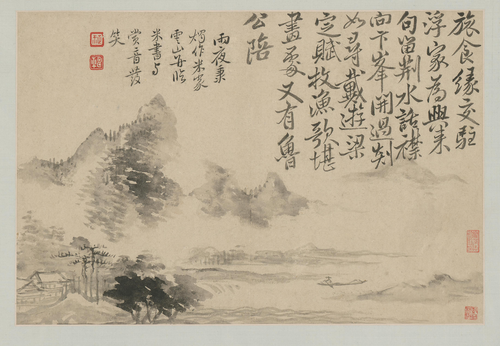 旅食緣交駐
浮家為興来
句留荆水話襟
向卞峯開過剡
如尋戴遊梁
定賦枚漁歌堪
畫處又有魯
公陪
雨夜秉
燭作米家
雲山並臨
米書与
賞音發
笑